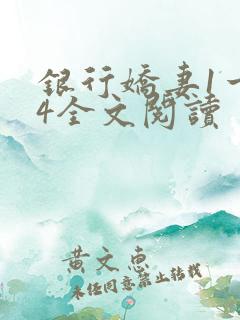 銀行嬌妻1一
4全文閱讀
黃文惠
未經同意禁止轉載